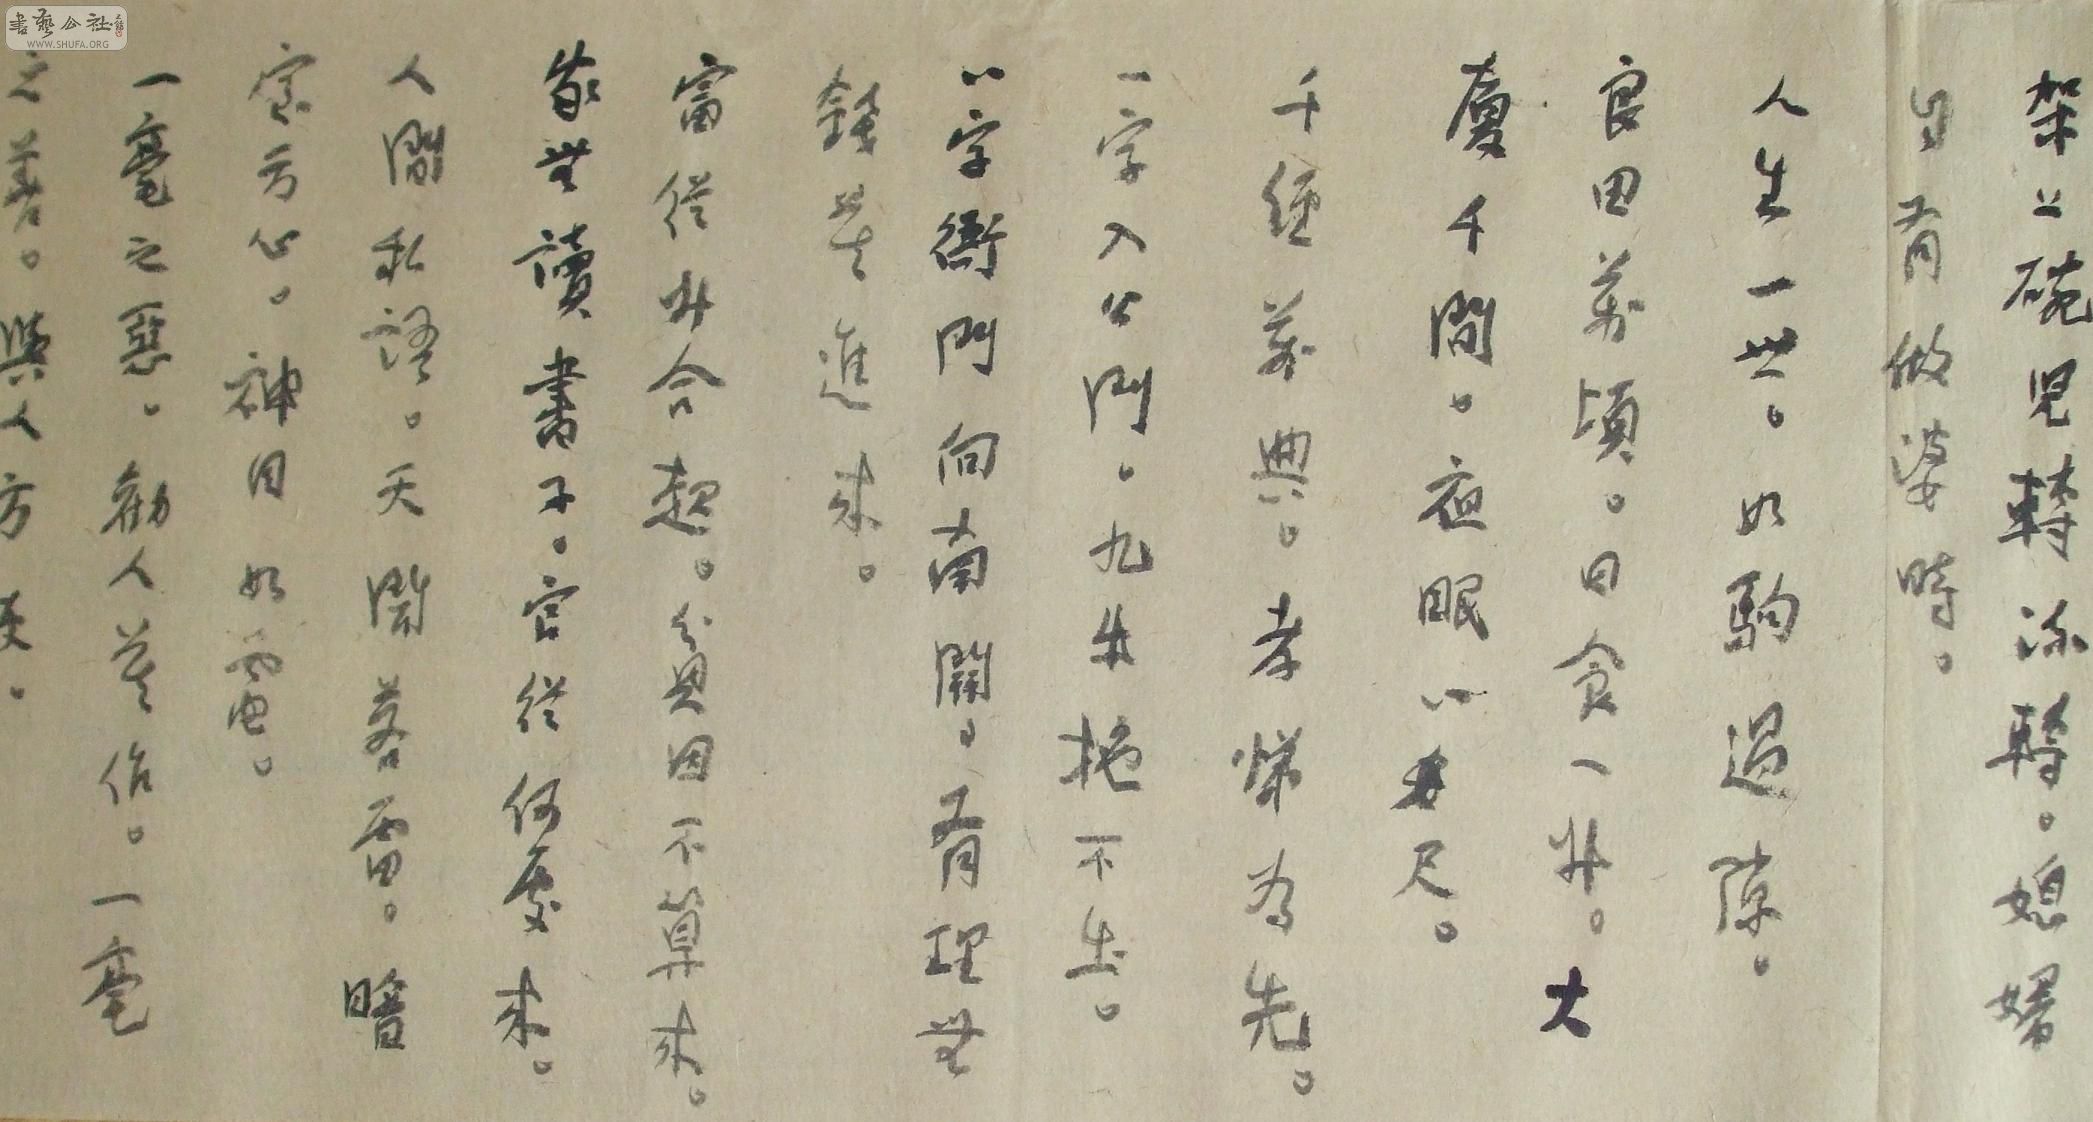 書藝公社
WWW.SHUFA.ORG
架上碗兒轉流轉。媳婦
自有做婆時。
人生一世。如駒過隙。
良田萬頃。日食一升。大
廈千間。夜眠八尺。
千經萬典。孝悌為先。
一字入公門。九牛拖不出。
八字衙門向南開。有理無
錢莫進來。
富從升合起。貧因不算來。
家無讀書子。官從何處來。
人間私語。天聞若雷。暗
室亏心。神目如電。
一毫之惡。勸人莫作。一毫
之善。與人方便。